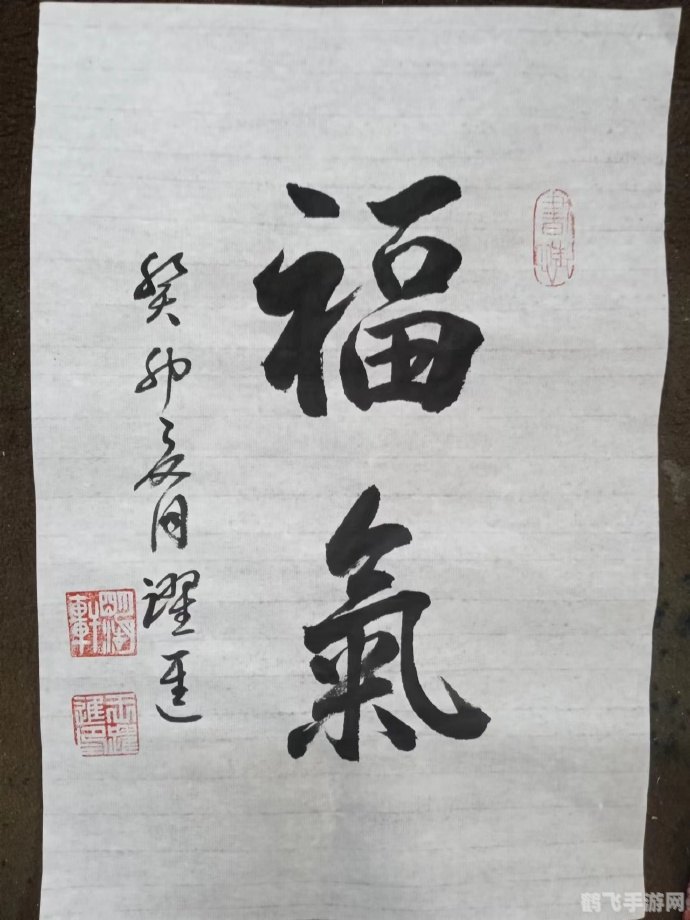 福氣
癸卯夏月躍進
鹤飞手游网